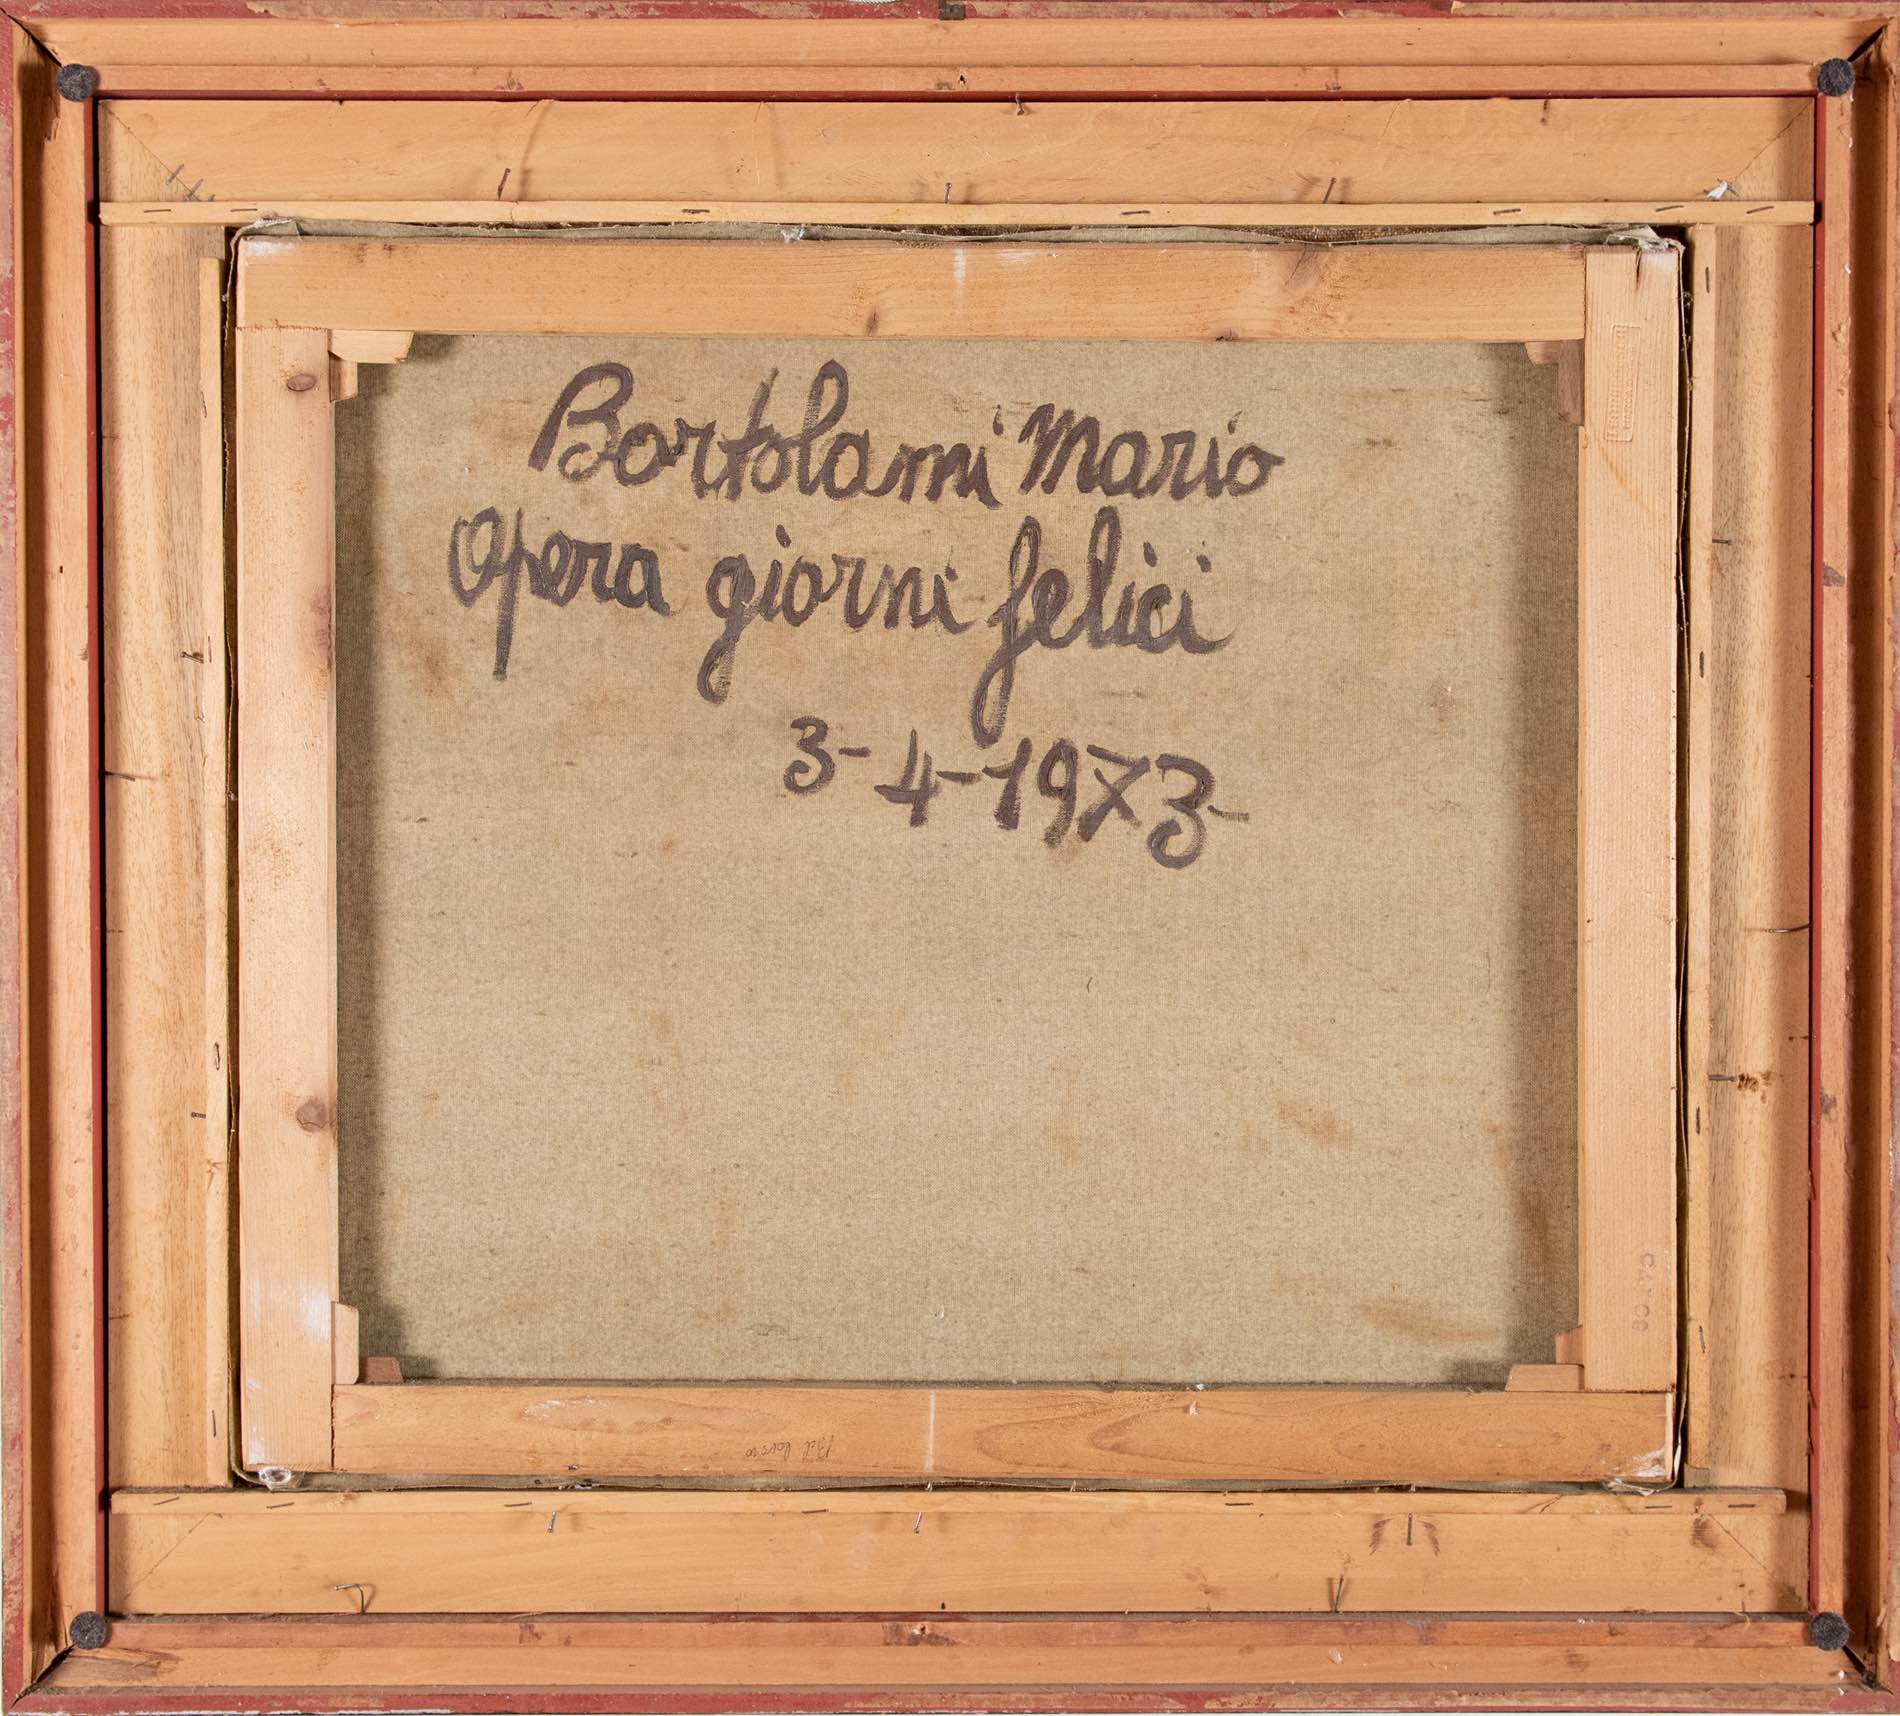 Bortolami Mario
Opera giorni felici
3-4-1973-